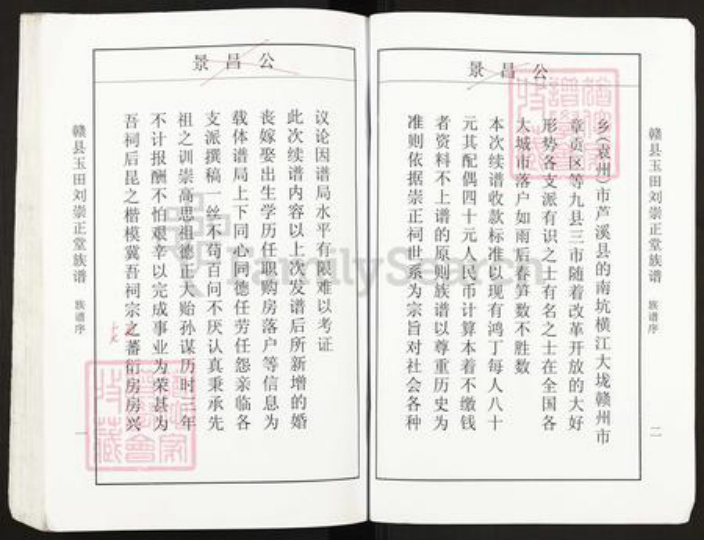 景昌公
赣县玉田刘崇正堂族谱
族谱序
二
乡(袁州)市芦溪县的南坑横江大垅赣州市
章贡区等九县三市随着改革开放的大好
形势各支派有识之士有名之士在全国各
大城市落户如雨后春笋数不胜数
本次续谱收款标准以现有鸿丁每人八十
元其配偶四十元人民币计算本着不缴钱
者资料不上谱的原则族谱以尊重历史为
准则依据崇正祠世系为宗旨对社会各种
景昌公
议论因谱局水平有限难以考证
此次续谱内容以上次发谱后所新增的婚
丧嫁娶出生学历任职购房落户等信息为
载体谱局上下同心同德任劳任怨亲临各
支派撰稿一丝不苟百问不厌认真秉承先
祖之训崇高思祖德正大贻孙谋历时三年
不计报酬不怕艰辛以完成事业为荣甚为
吾祠后昆之楷模冀吾祠宗之蕃衍房房兴
赣县玉田刘崇正堂族谱
族谱序
一
FamilySearch